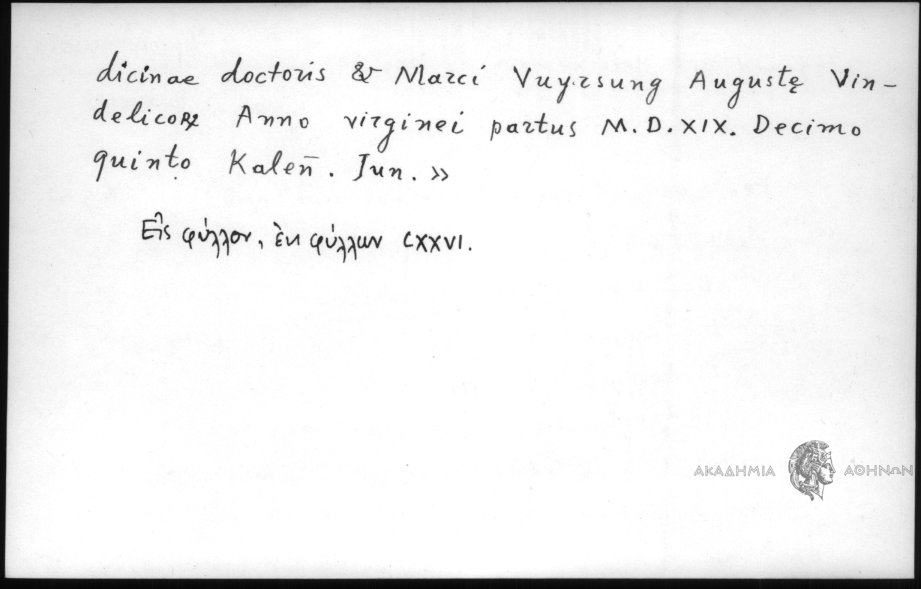 dicinae doctoris & Marci Vuyrsung Augustę Vin-
delicoꝝ Anno virginei partus M.D.XIX. Decimo
quinto Kaleñ. Jun. »
Εἰς φύλλον, ἐκ φύλλων CXXVI.
ΑΚΑΔΗΜΙΑ ΑΘΗΝΩΝ